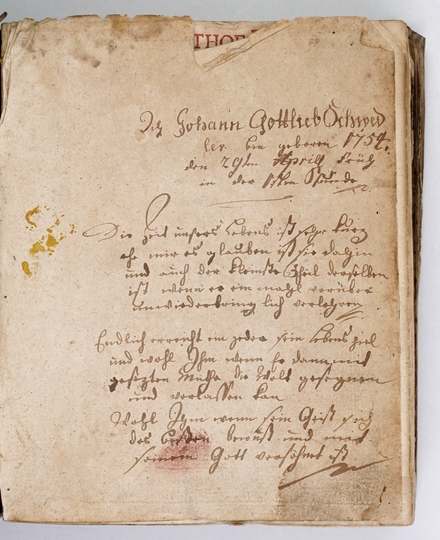 THOR
Ich Johann Gottlieb Schwed
ler bin geboren 1754.
den 29ten Aprill früh
in der 1sten Stunde
Die Zeit unsers Lebens ist sehr kurz
ehe wir es glauben ist sie dahin
und auch der kleinste Theil derselben
ist wenn er ein mahl vorüber
unwiederbringlich verlohren
Endlich erreicht ein jeder sein Lebens ziel
und wohl Ihm wenn Er dann mit
gesetzten Muthe die Welt gesegnen
und verlassen kan
Wohl Ihm wenn sein Geist sich
des besten bewust und mit
seinem Gott versöhnet ist